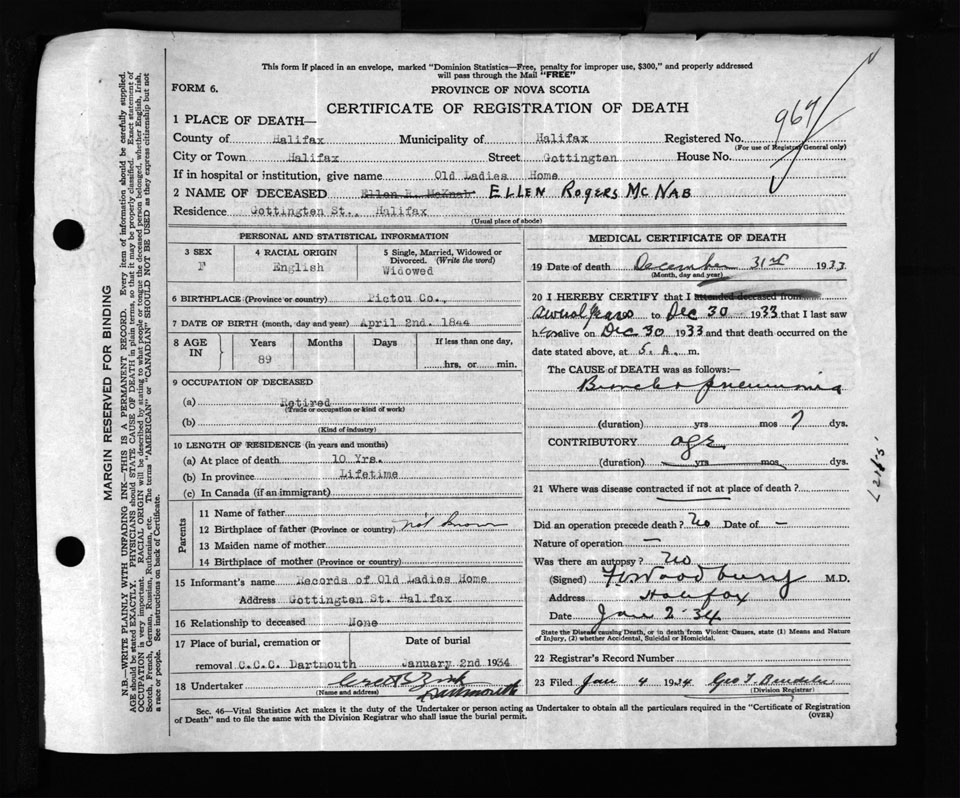 This form if placed in an envelope, marked "Dominion Statistics—Free, penalty for improper use, $300," and properly addressed
will pass through the Mail "FREE"
FORM 6.
PROVINCE OF NOVA SCOTIA
CERTIFICATE OF REGISTRATION OF DEATH
967
1 PLACE OF DEATH—
County of Halifax Municipality of Halifax Registered No.
(For use of Registrar General only)
City or Town Halifax Street Gottingten House No.
If in hospital or institution, give name Old Ladies Home
2 NAME OF DECEASED Ellen R. McKnab ELLEN ROGERS MC NAB
Residence Gottingten St., Halifax
(Usual place of abode)
PERSONAL AND STATISTICAL INFORMATION
3 SEX
F
4 RACIAL ORIGIN
English
5 Single, Married, Widowed or
Divorced. (Write the word)
Widowed
6 BIRTHPLACE (Province or country) Pictou Co.,
7 DATE OF BIRTH (month, day and year) April 2nd. 1844
8 AGE
IN
Years
89
Months
Days
If less than one day,
hrs, or min.
9 OCCUPATION OF DECEASED
(a) Retired
(Trade or occupation or kind of work)
(b)
(Kind of industry)
10 LENGTH OF RESIDENCE (in years and months)
(a) At place of death 10 Yrs.
(b) In province Lifetime
(c) In Canada (if an immigrant)
Parents
11 Name of father
12 Birthplace of father (Province or country) not known
13 Maiden name of mother
14 Birthplace of mother (Province or country)
15 Informant's name Records of Old Ladies Home
Address Gottingten St. Halifax
16 Relationship to deceased None
17 Place of burial, cremation or
removal C.C.C. Dartmouth
Date of burial
January 2nd 1934
18 Undertaker Zink
(Name and address) Dartmouth
MEDICAL CERTIFICATE OF DEATH
19 Date of death December 31st 1933
(Month, day and year)
20 I HEREBY CERTIFY that I attended deceased from
several years to Dec 30 1933 that I last saw
h er alive on Dec 30 1933 and that death occurred on
date stated above, at 5. A. m.
The CAUSE OF DEATH was as follows:—
Broncho pneumonia
(duration) yrs mos 7 dys.
CONTRIBUTORY age
(duration) yrs mos dys.
21 Where was disease contracted if not at place of death?
Did an operation precede death? No Date of —
Nature of operation —
Was there an autopsy? No
(Signed) F. Woodbury M.D.
Address Halifax
Date Jan 2 '34
State the Disease causing Death, or in death from Violent Causes, state (1) Means and Nature
of Injury, (2) whether Accidental, Suicidal or Homicidal.
22 Registrar's Record Number
23 Filed Jan 4 1934 Geo T.
(Division Registrar)
Sec. 46—Vital Statistics Act makes it the duty of the Undertaker or person acting as Undertaker to obtain all the particulars required in the "Certificate of Registration
of Death" and to file the same with the Division Registrar who shall issue the burial permit.
(OVER)
MARGIN RESERVED FOR BINDING
N.B.—WRITE PLAINLY WITH UNFADING INK—THIS IS A PERMANENT RECORD. Every item of information should be carefully supplied.
AGE should be stated EXACTLY. PHYSICIANS should STATE CAUSE OF DEATH in plain terms, so that it may be properly classified. Exact statement of
OCCUPATION is very important. RACIAL ORIGIN will be described by stating to what people or tongue the deceased person belonged, whether English, Irish,
Scotch, French, German, Russian, Ruthenian, etc. The terms "AMERICAN" or "CANADIAN" SHOULD NOT BE USED as they express citizenship but not
a race or people. See instructions on back of Certificate.